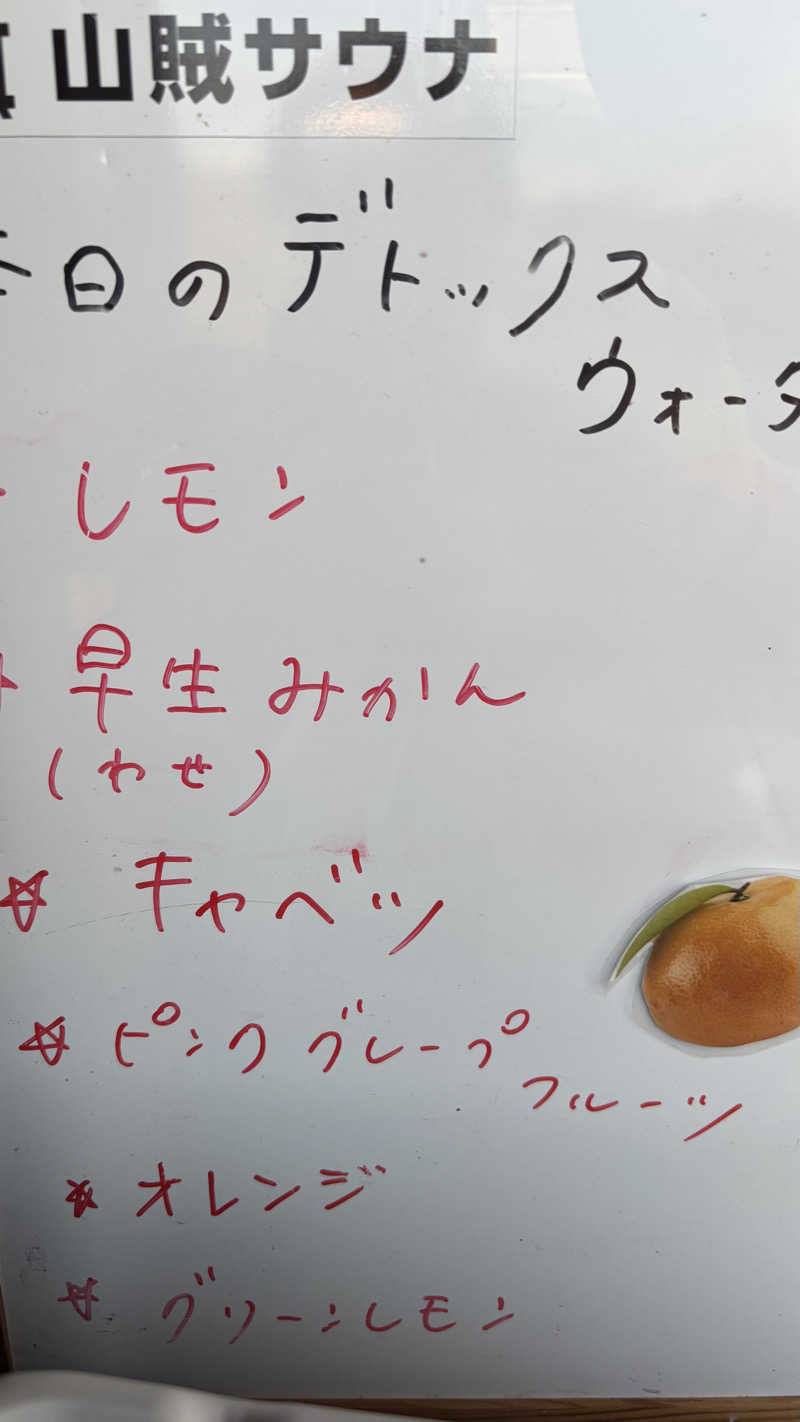 山賊サウナ
今日のデトックス
ウォータ
レモン
早生みかん
(わせ)
☆ キャベツ
☆ ピンクグレープ
フルーツ
☆ オレンジ
☆ グリーンレモン